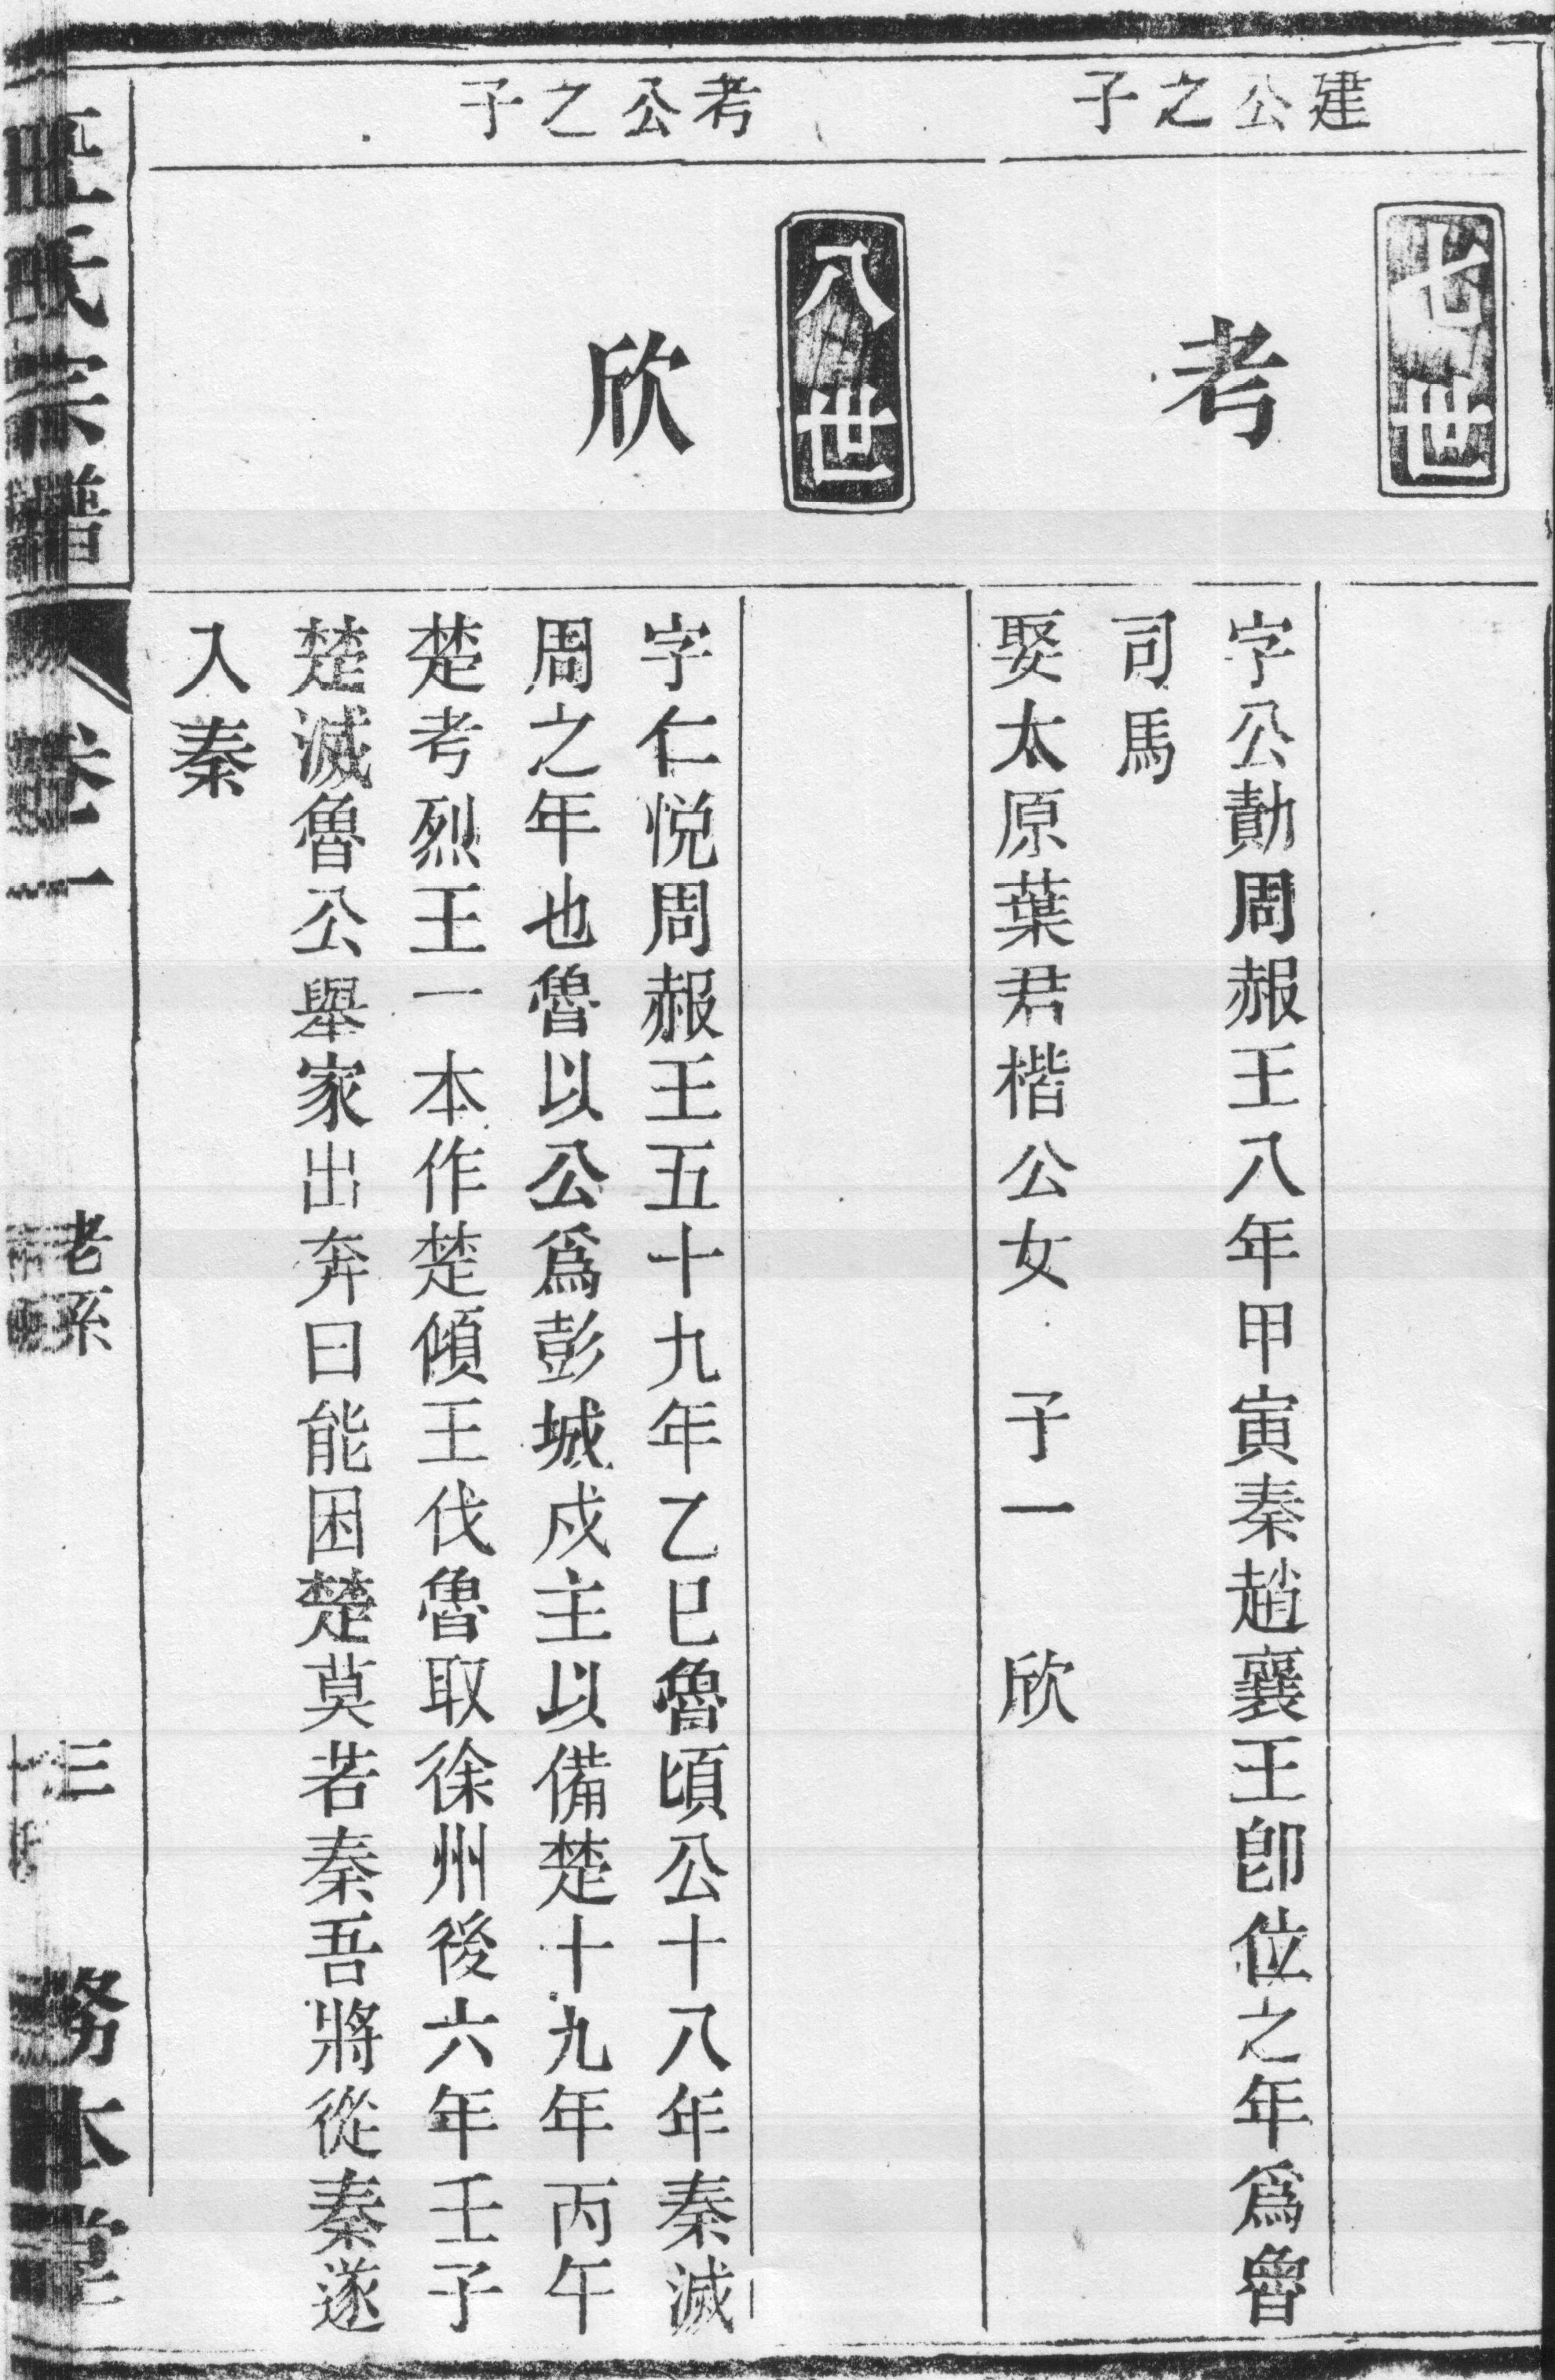 建公之子
七世
考
字公勣周赧王八年甲寅秦趙襄王卽位之年爲魯
司馬
娶太原葉君楷公女 子一 欣
考公之子
八世
欣
字仁悦周赧王五十九年乙巳魯頃公十八年秦滅
周之年也魯以公爲彭城戍主以備楚十九年丙午
楚考烈王一本作楚傾王伐魯取徐州後六年壬子
楚滅魯公舉家出奔曰能困楚莫若秦吾將從秦遂
入秦
氏宗譜
卷一
老系
三
務本堂